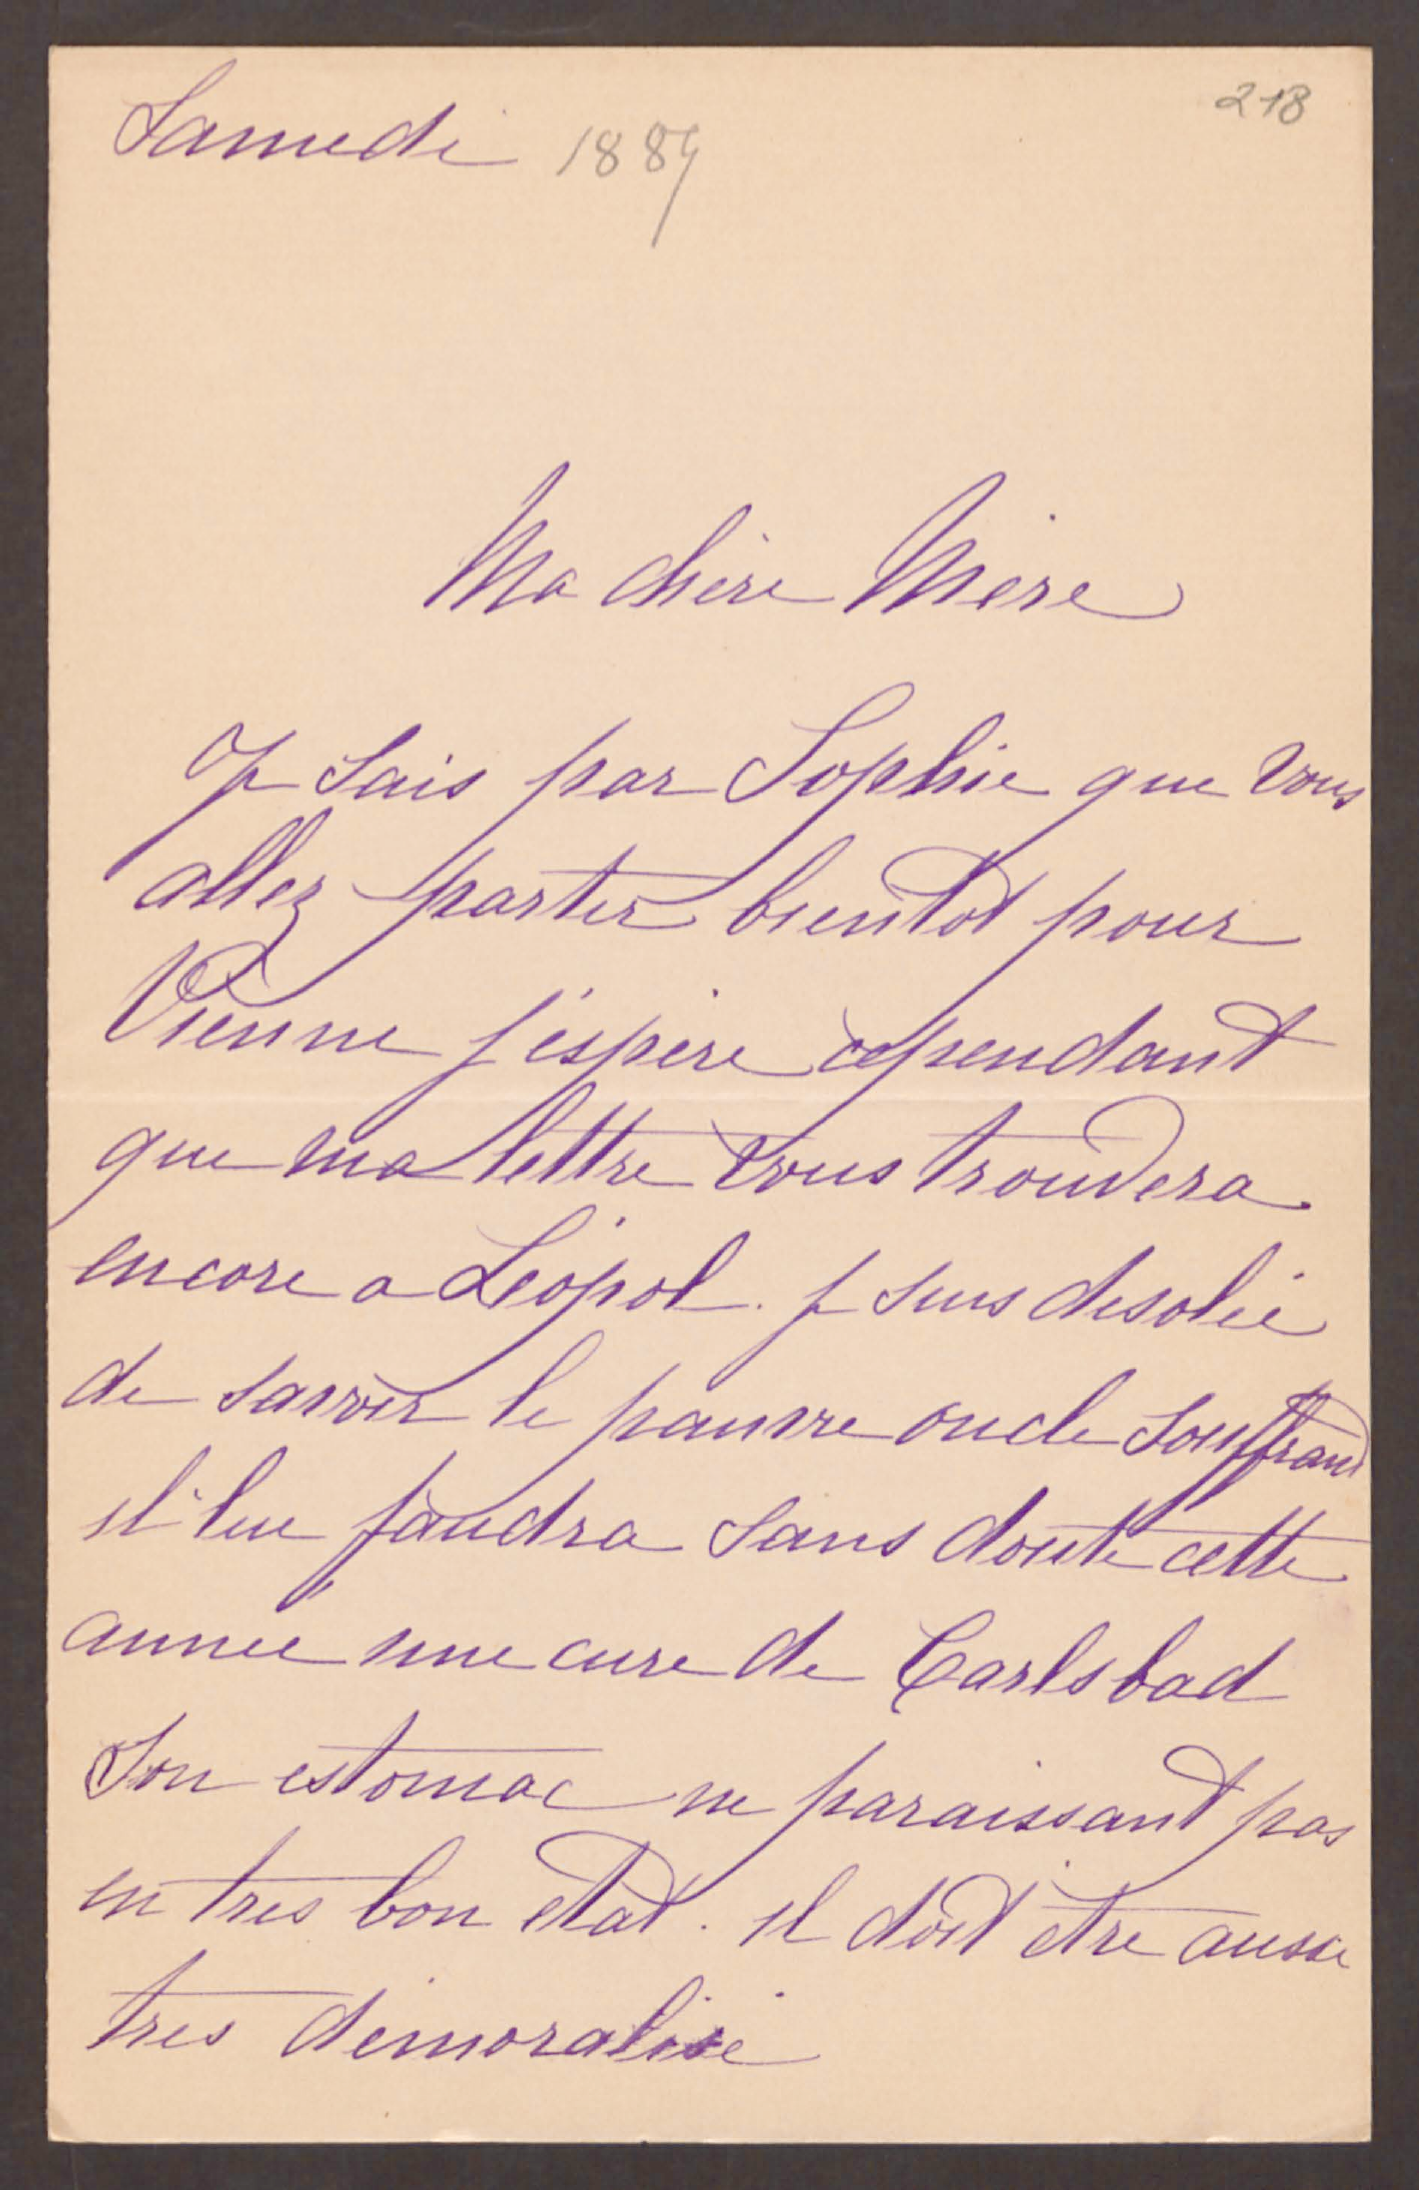 218
Samedi 1889
Ma chère Mère
Je sais par Sophie que vous
allez partir bientot pour
Vienne j'espère cependant
que ma lettre vous trouvera
encore a Léopol. je suis desolée
de savoir le pauvre oncle souffrant
il lui faudra sans doute cette
année une cure de Carlsbad
son estomac ne paraissant pas
en tres bon etat. il doit être aussi
tres démoralisé